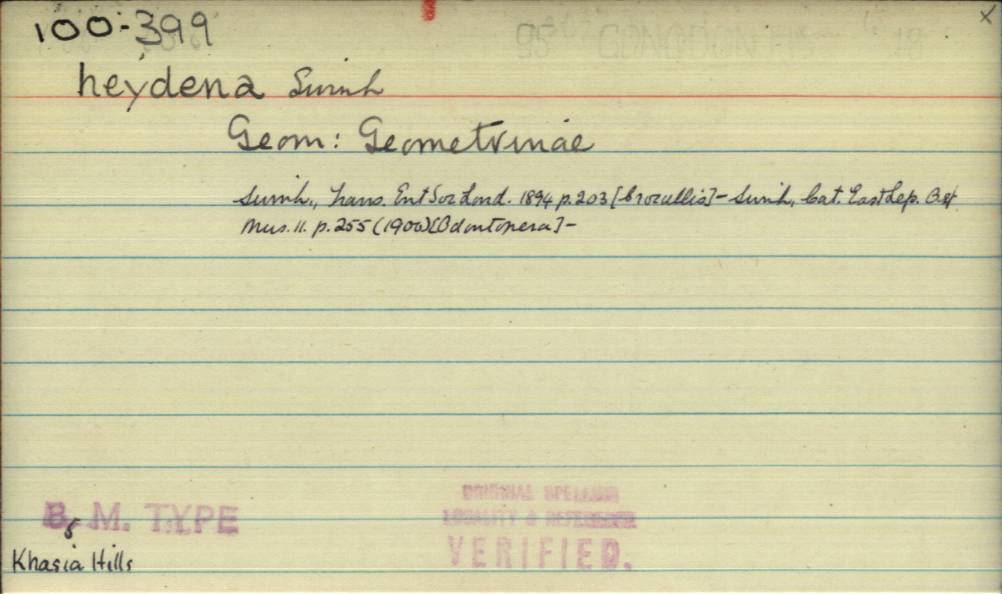 100-399
x
heydena Swinh
Geom: Geometrinae
Swinh., Trans. Ent Soc Lond. 1894 p.203 [Crocallis] - Swinh, Cat. East Lep. Oxf
Mus. 11. p.255 (1900) [Odontopera] -
B. M. TYPE
Khasia Hills
ORIGINAL SPELLING
LOCALITY & REFERENCE
VERIFIED.